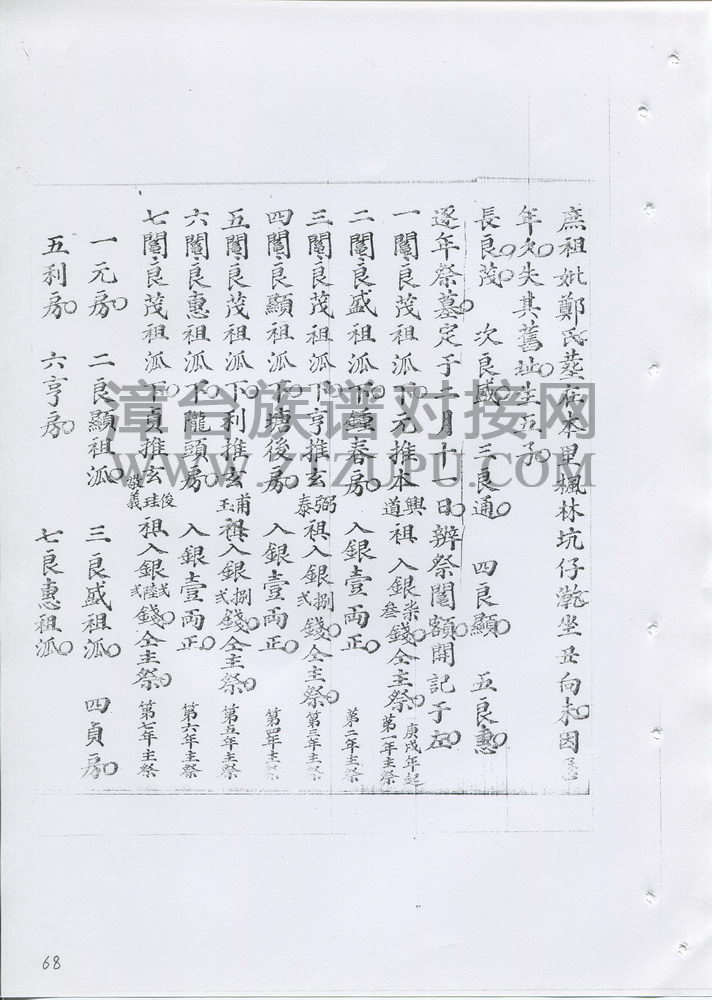 庶祖妣鄭氏葬在本里楓林坑仔乾坐丑向未因
年久失其舊址生五子
長良茂 次良盛 三良通 四良顯 五良惠
逐年祭墓定于二月十一日辨祭鬮額開記于左
一鬮良茂祖派下元推本興道祖入銀柒叁錢仝主祭 庚戌年起第一年主祭
二鬮良盛祖派下鍾春房入銀壹両正 第二年主祭
三鬮良茂祖派下亨推玄弼泰祖入銀捌弍錢仝主祭 第三年主祭
四鬮良顯祖派下塘後房入銀壹両正 第四年主祭
五鬮良茂祖派下利推玄甫玉祖入銀捌弍錢仝主祭 第五年主祭
六鬮良惠祖派下隴頭房入銀壹両正 第六年主祭
七鬮良茂祖派下貞推玄俊珪義祖入銀弍陸弍錢仝主祭 第七年主祭
一元房 二良顯祖派 三良盛祖派 四貞房
五利房 六亨房 七良惠祖派
漳台族谱对接网
WWW.ZTZUPU.COM
68